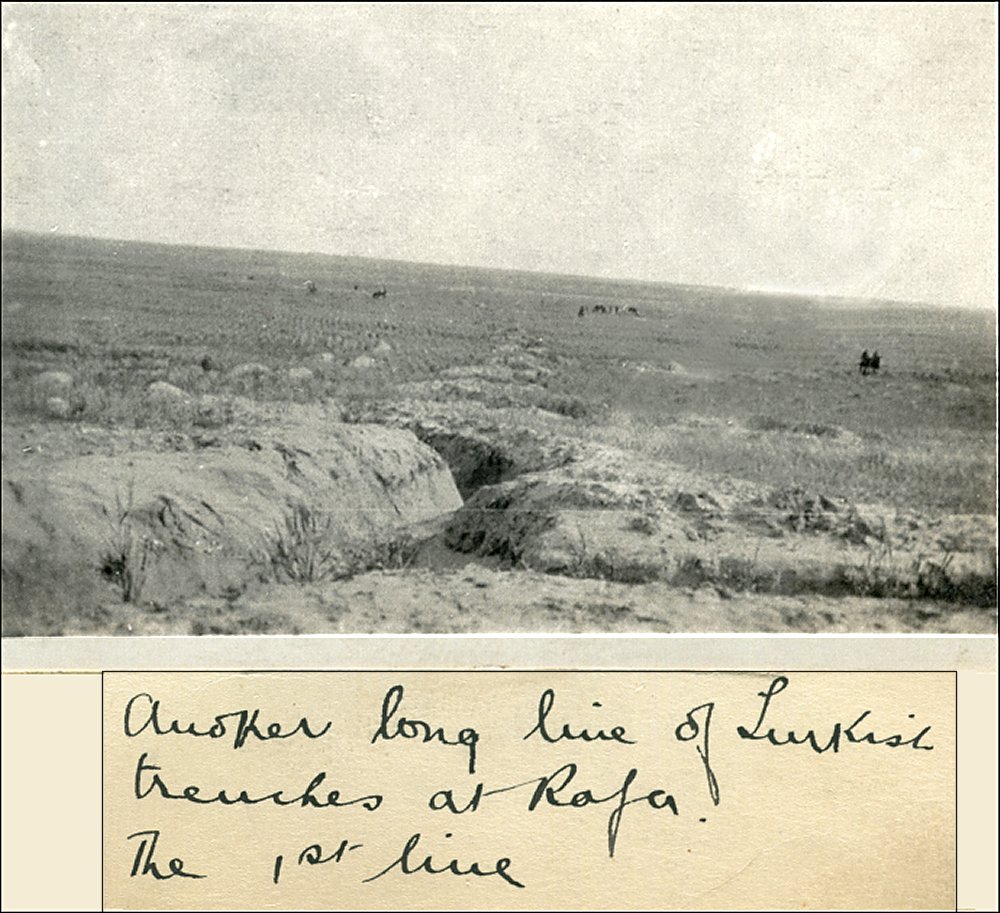 Another long line of Turkish
trenches at Rafa.
The 1st line